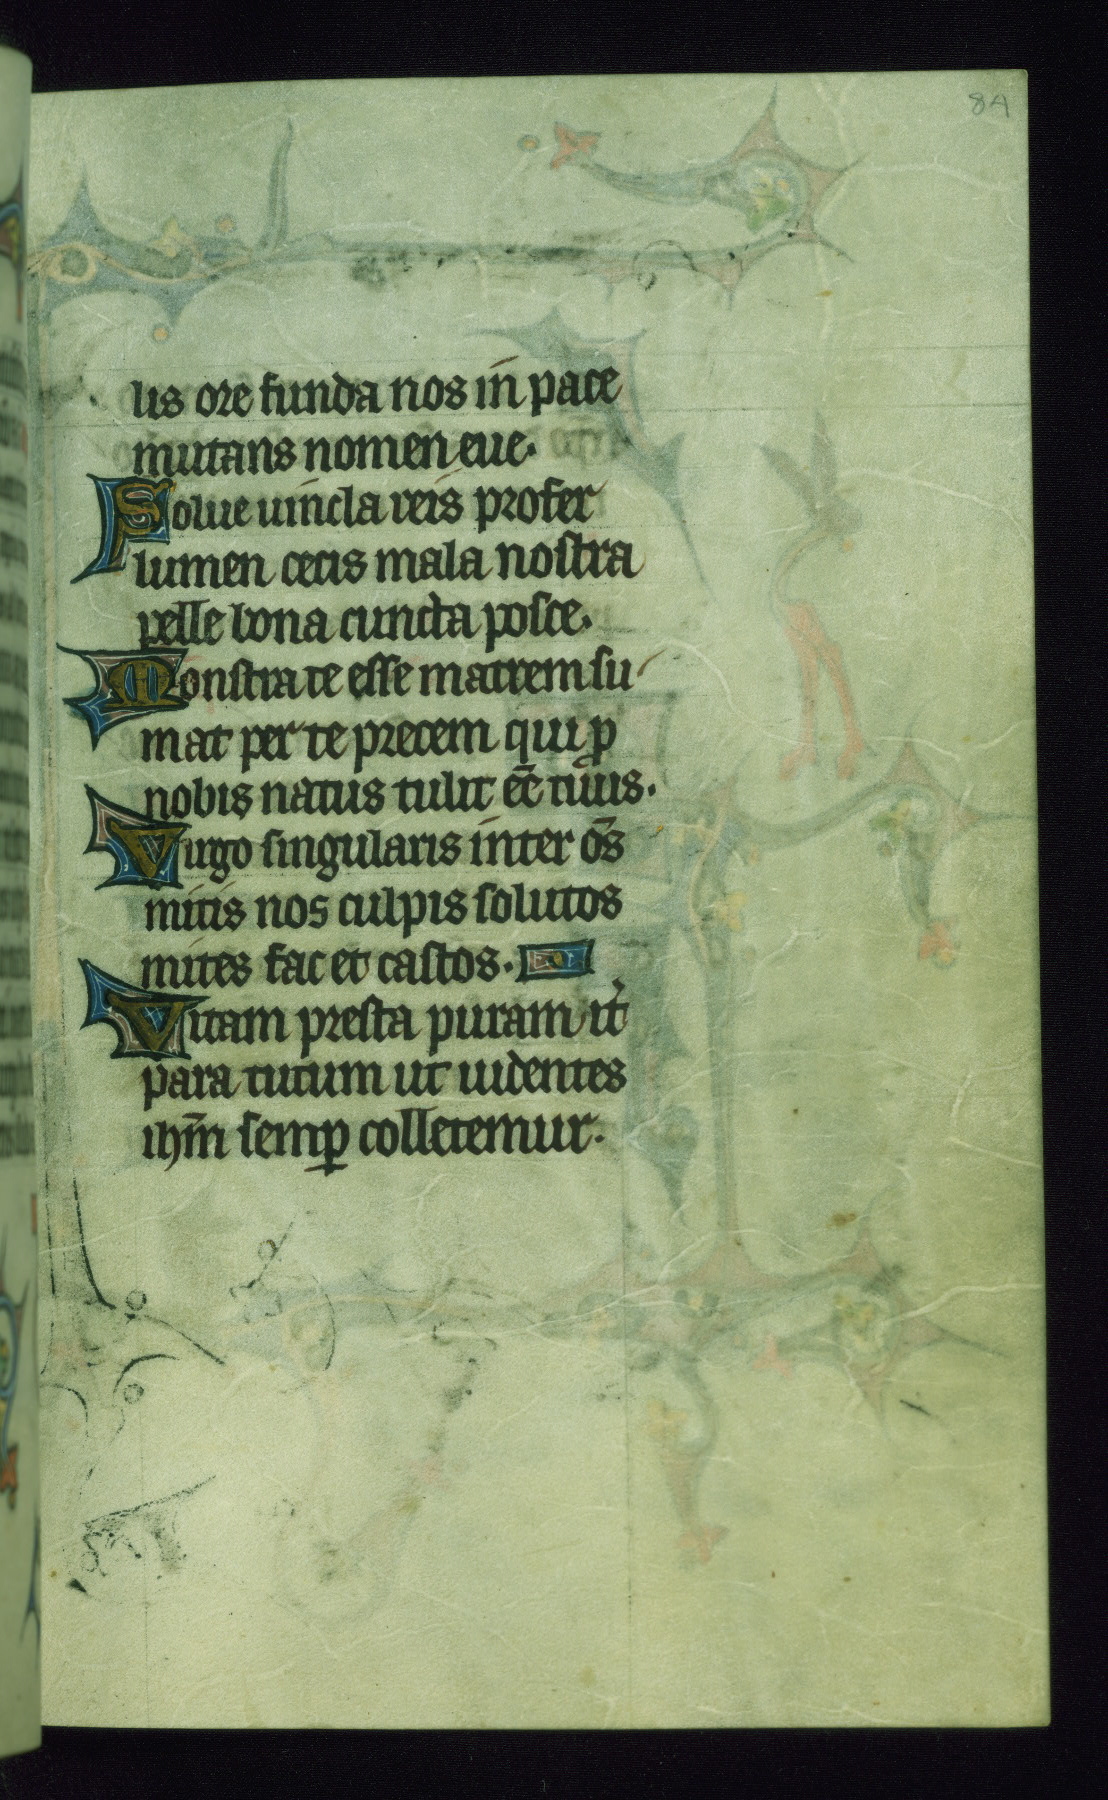 84
lis ore funda nos in pace
mutans nomen eue.
Solue uincla reis profer
lumen cecis mala nostra
pelle bona cuncta posce.
Monstra te esse matrem su
mat per te precem qui ꝓ
nobis natus tulit eē tuus.
Virgo singularis inter oēs
mitis nos culpis solutos
mites fac et castos.
Vitam presta puram it̾
para tutum ut uidentes
ihm̄ semꝑ colletemur.